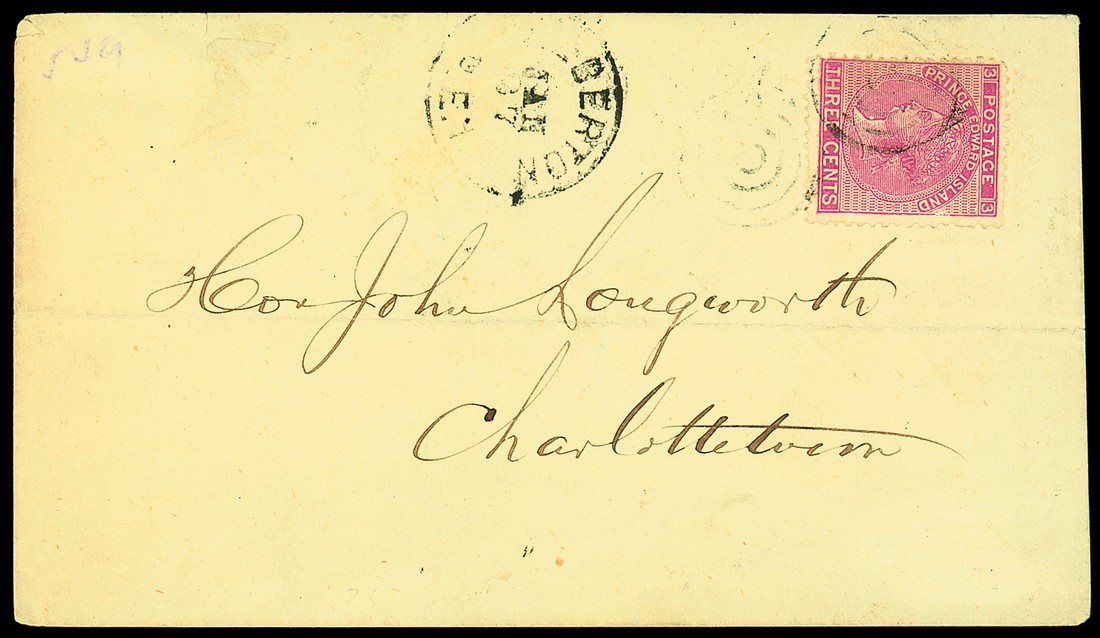 BERTON
POSTAGE
3 3
PRINCE EDWARD ISLAND
THREE CENTS
Hon John Longworth
Charlottetown